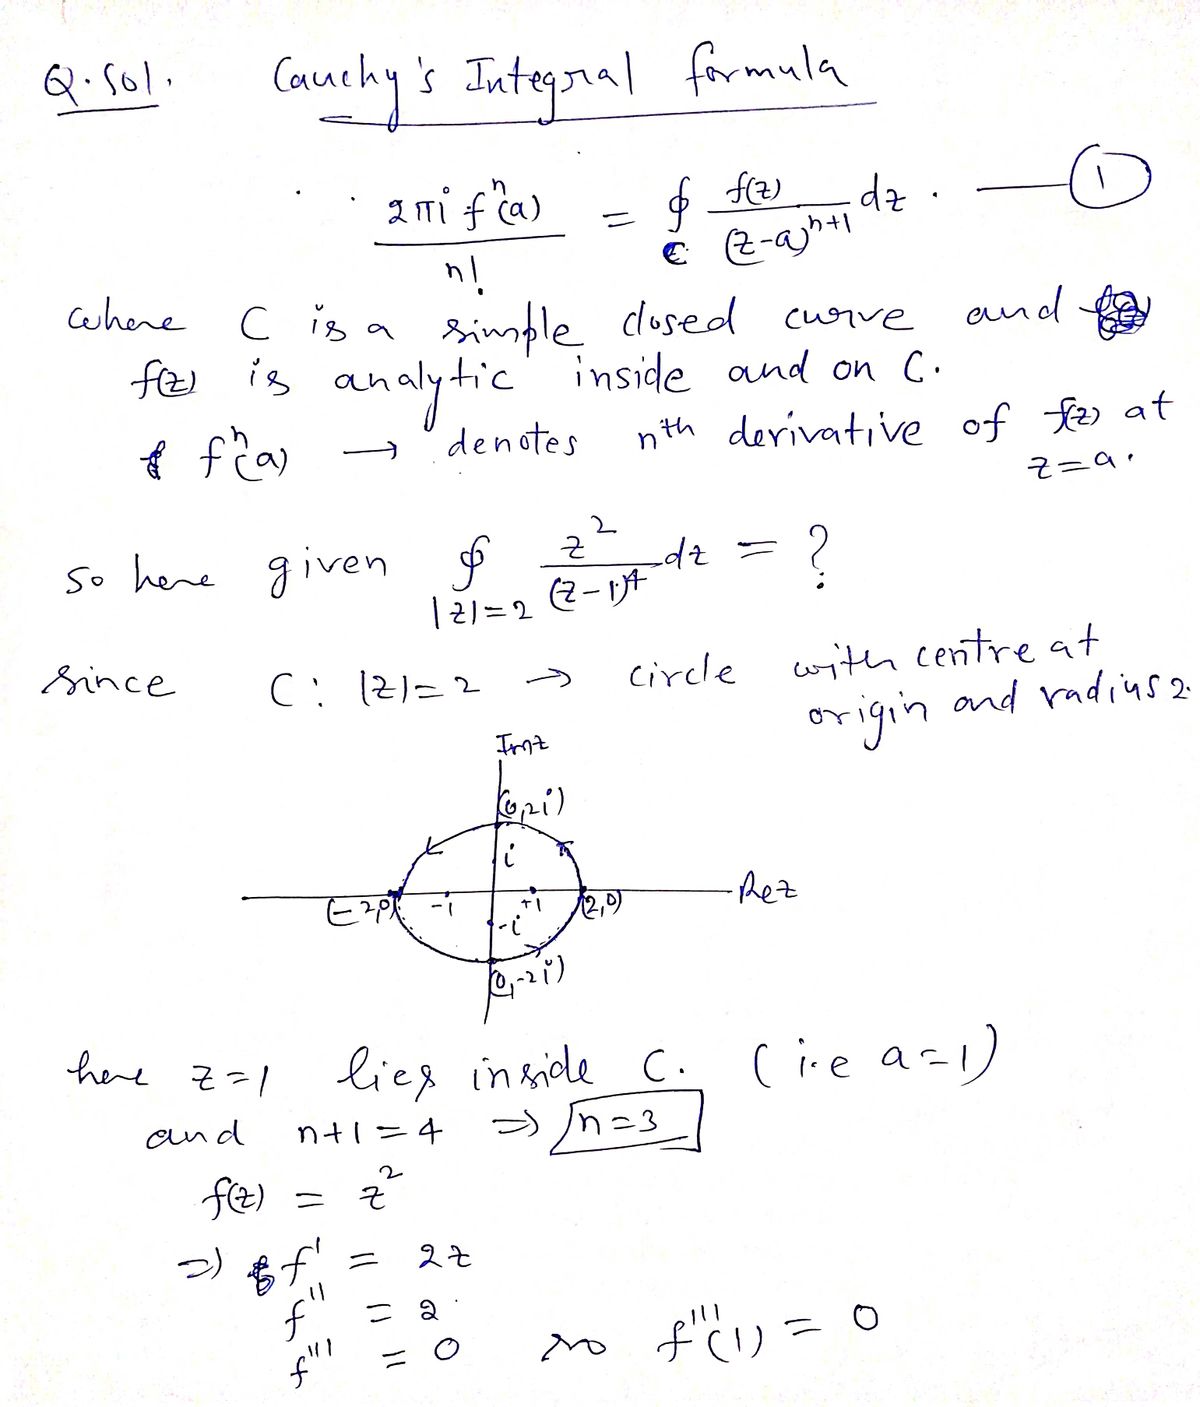 Q. Sol. Cauchy's Integral formula
2πi fⁿ(a) / n! = ∮_C f(z) / (z-a)ⁿ⁺¹ dz. — ①
where C is a simple closed curve and
f(z) is analytic inside and on C.
fⁿ(a) → denotes nth derivative of f(z) at
z=a.
so here given ∮_|z|=2 z² / (z-1)⁴ dz = ?
since C: |z|=2 → circle with centre at
origin and radius 2.
Imz
(0,2i)
i
(-2,0) -1 +1 (2,0) Rez
-i
(0,-2i)
here z=1 lies inside C. (i.e a=1)
and n+1=4 ⇒ n=3
f(z) = z²
⇒ f' = 2z
f'' = 2
f''' = 0 so f'''(1) = 0